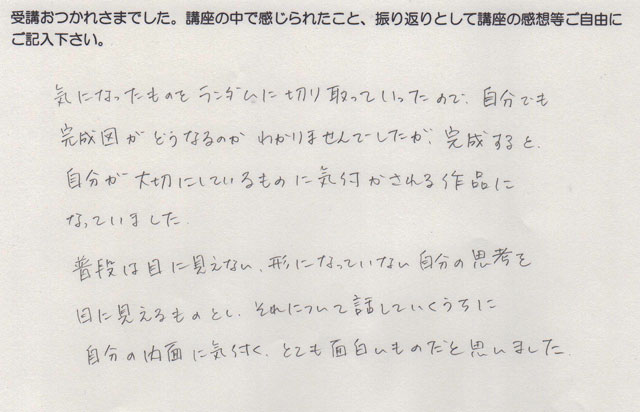 受講おつかれさまでした。講座の中で感じられたこと、振り返りとして講座の感想等ご自由に
ご記入下さい。
気になったものをランダムに切り取っていったので、自分でも
完成図がどうなるのかわかりませんでしたが、完成すると、
自分が大切にしているものに気付かされる作品に
なっていました。
普段は目に見えない、形になっていない自分の思考を
目に見えるものとし、それについて話していくうちに
自分の内面に気付く、とても面白いものだと思いました。